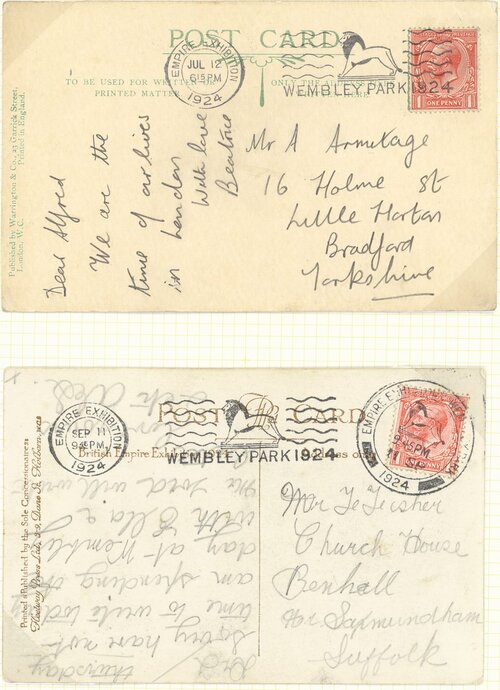 POST CARD
EMPIRE EXHIBITION
JUL 12
6 15 PM
1924
WEMBLEY PARK 1924
ONE PENNY
TO BE USED FOR
PRINTED MATTER
ONLY THE
Published by Warrington & Co., 23 Garrick Street,
London, W.C.
Printed in England.
Dear Alfred
We are the
time of our lives
in London
With love
Beatrice
Mr A Armitage
16 Holme St
Little Horton
Bradford
Yorkshire
POST CARD
British Empire Ex
EMPIRE EXHIBITION
SEP 11
9 45 PM
1924
WEMBLEY PARK 1924
EMPIRE EXHIBITION
9 45 PM
11 SP
1924
Printed & Published by the Sole Concessionnaires
Thursday
Sorry have not
time to write
am spending the
day at Wembley
with Ella &
will
Mr
Church House
Benhall
Nr Saxmundham
Suffolk